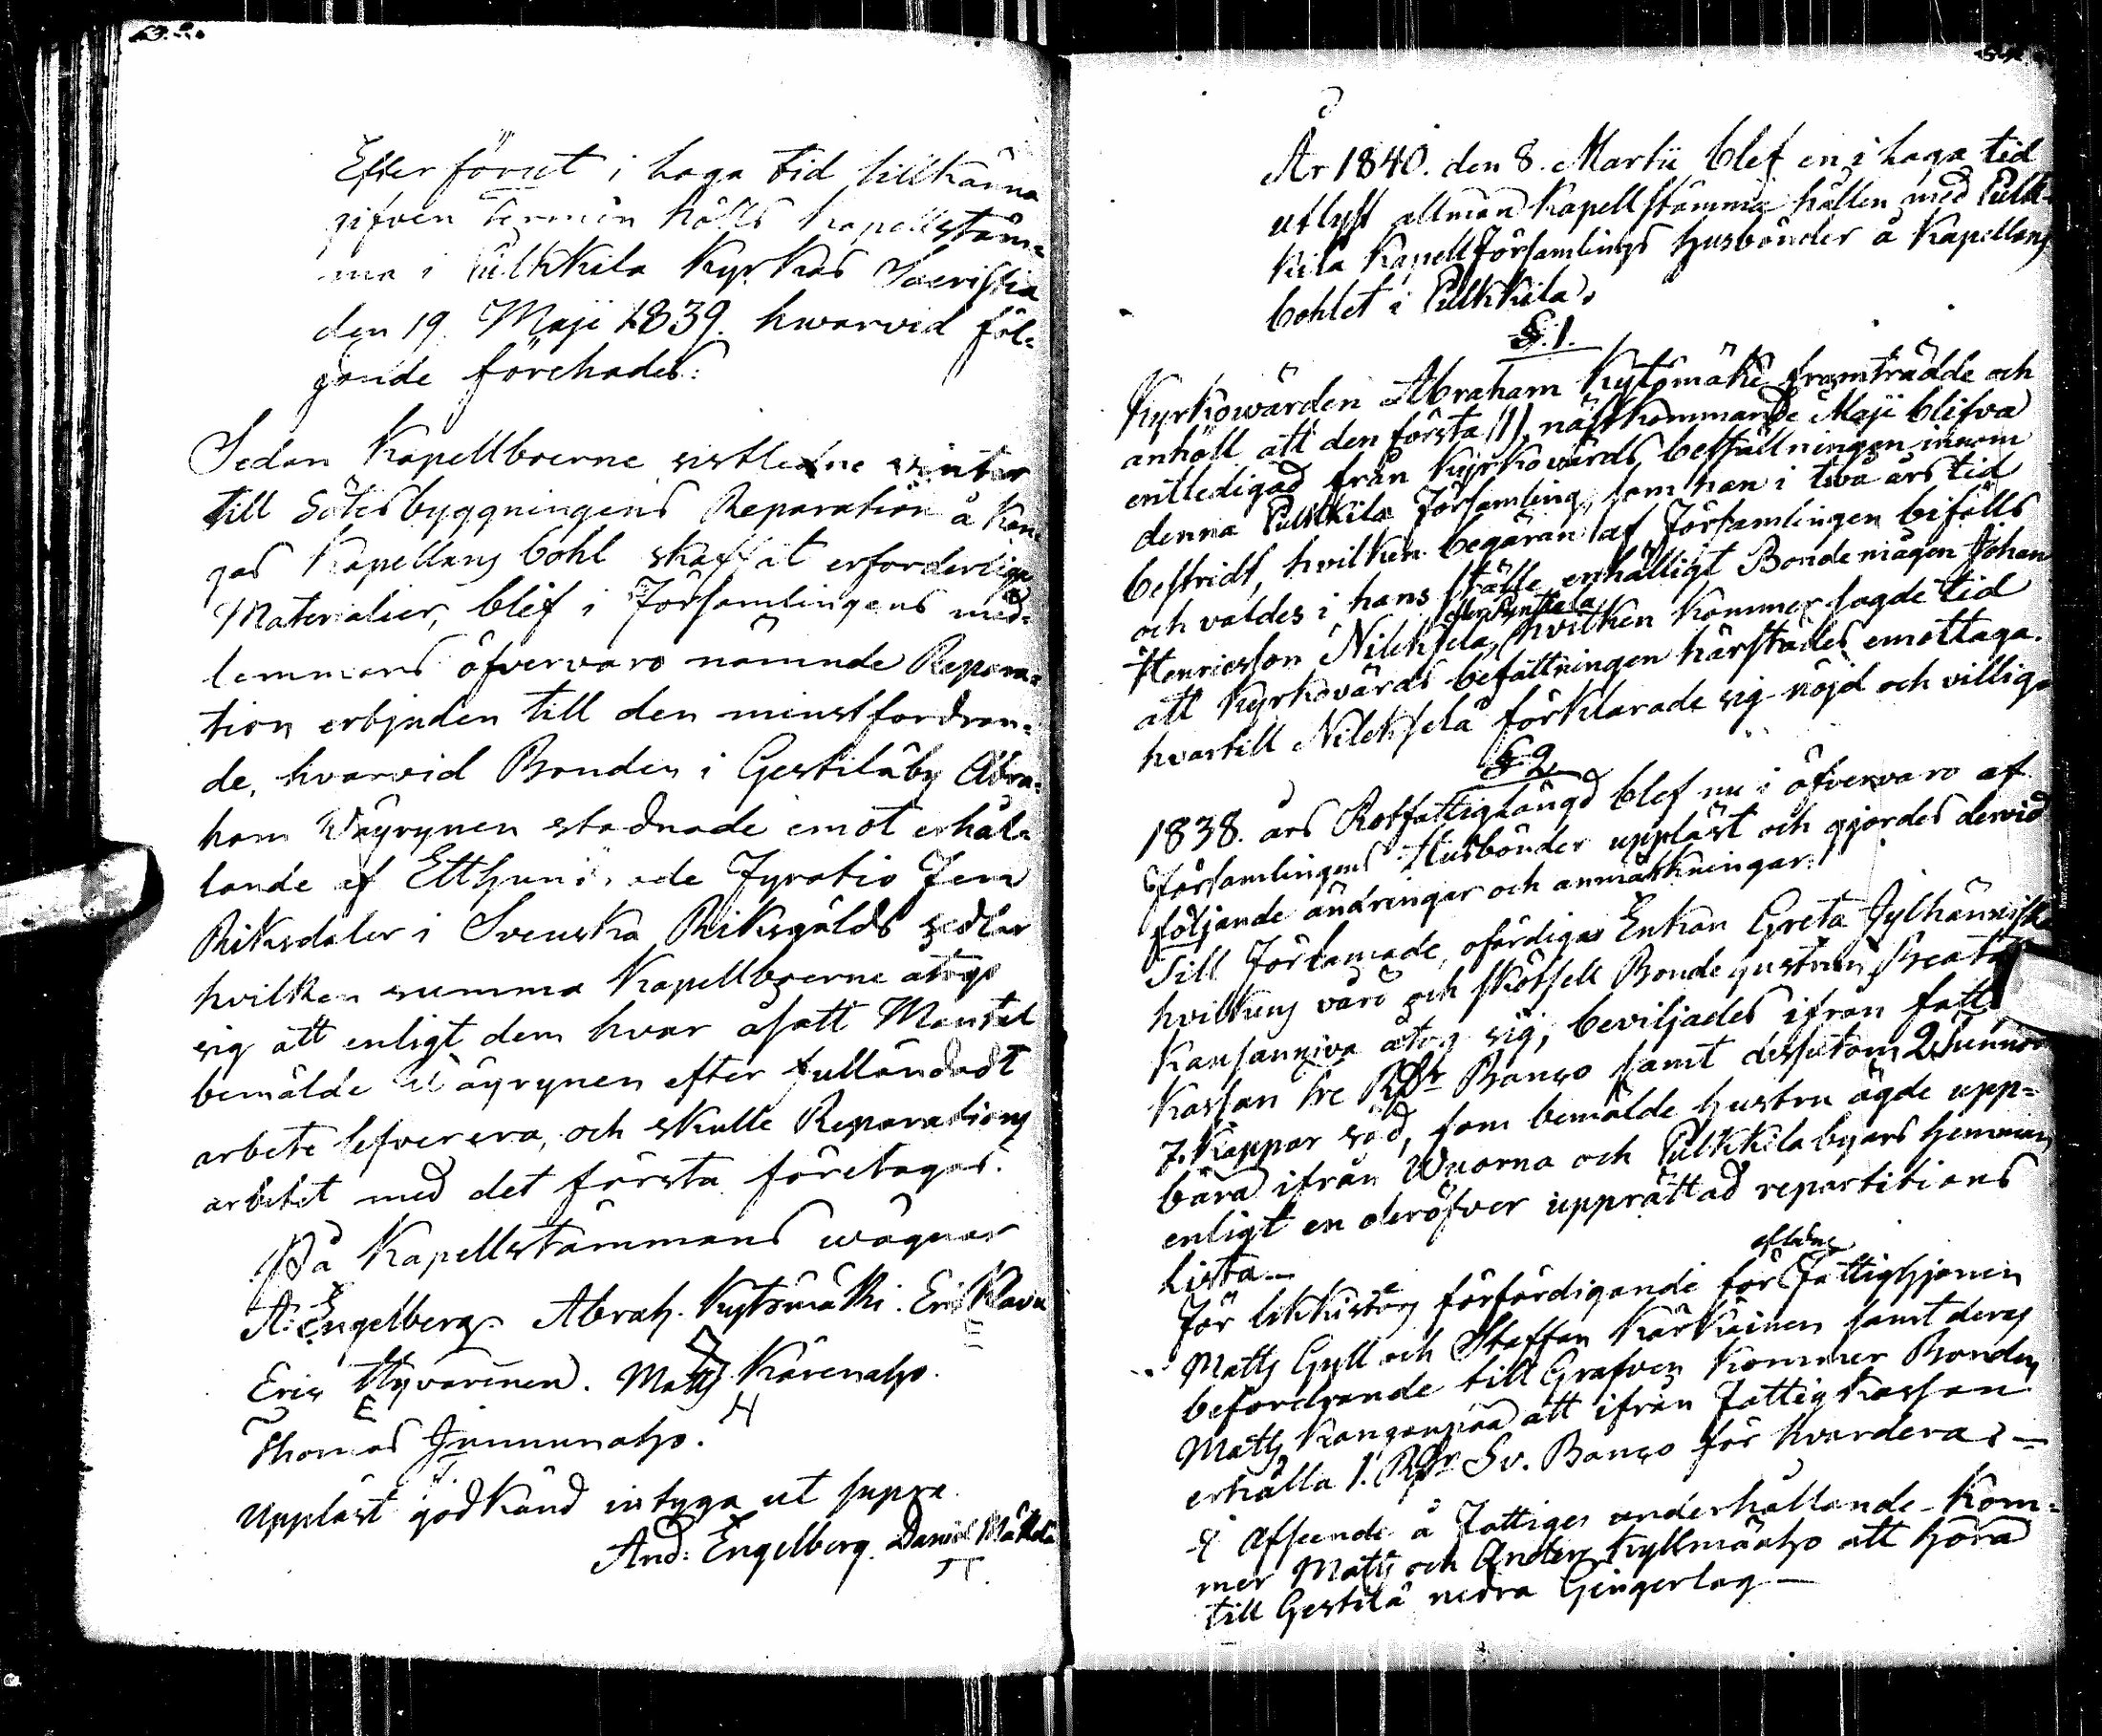 Efter förut i laga tid tillkänna
gifven termin hölls Kapellstäm=
ma i Pulkkila Kyrkas Sacristia
den 19. Maji 1839. hwarvid föl=
gande förehades:
Sedan Kapellboerne sistledne vinter
till Sätesbyggningens Reparation å Kan=
gas Kapellans bohl skaffat erforderliga
Materialier, blef i Församlingens med=
lemmars öfvervaro nämnde Repara=
tion erbjuden till den minstfordran=
de, hvarvid Bonden i Gestilä by Abra=
ham Wäyrynen stadnade emot erhål=
lande af Etthundrade Fyratio Fem
Riksdaler i Svenska Riksgälds sedlar
hvilken summa Kapellboerne åtogo
sig att enligt dem hvar åsatt Mantal
bemälde Wäyrynen efter fulländadt
arbete lefverera, och skulle Reparations
arbetet med det första företagas.
På Kapellstämmans wägnar
A: Engelberg. Abrah. Kytömäki. Eric Klavu
E
Eric Hyvärinen. Matts Kärenaho.
E H
Thomas Junnunaho.
T.
Uppläst godkänd intyga ut supra.
And: Engelberg. Daniel Mäkelä
År 1840. den 8. Martii blef en i laga tid
utlyst allmän Kapellstämma hållen med Pulk=
kila Kapell Församlings Husbönder å Kapellans
bohlet i Pulkkila.
§.1.
Kyrkowärden Abraham Kytömäki framträdde och
anhöll att den första /1/ nästkommande Maji blifva
entledigad från Kyrkowärds beställningen inom
denna Pulkkila Församling, som han i två års tid
bestridt, hvilken begäran af Församlingen bifölls
och valdes i hans ställe enhälligt Bondemågen Johan
Henricsson Nilekselä, hvilken kommer sagde tid
att Kyrkovärds befattningen härstädes emottaga.
hvartill Nilekselä förklarade sig nöjd och villig.
§.2.
1838. års Rotfattiglängd blef nu i öfvervaro af
Församlingens Husbönder uppläst och gjordes dervid
följande ändringar och anmärkningar.
Till Förlamade, ofärdiga Enkan Greta Jylhänniskä
hvilkens vård och skötsell Bondehustrun Beata
Kansanniva åtog sig, beviljades ifrån fattig
Kassan tre RDr Banco samt dessutom 2 Tunnor
7. Kappar säd, som bemälde hustru ägde upp=
bära ifrån Wuorna och Pulkkila byars hemman
enligt en deröfver upprättad repartitions
Lista.—
aflidne
För likkistors förfärdigande för Fattighjonen
Matts Gyll och Staffan Kärkäinen samt deras
befordrande till Grafven kommer Bonden
Matts Kangaspää att ifrån Fattig Kassan
erhålla 1. RDr Sv. Banco för hvardera.—
I Afseende å Fattiges underhållande kom=
mer Matts och Anders Kyllmäaho att höra
till Gestilä nedra Gingerlag—